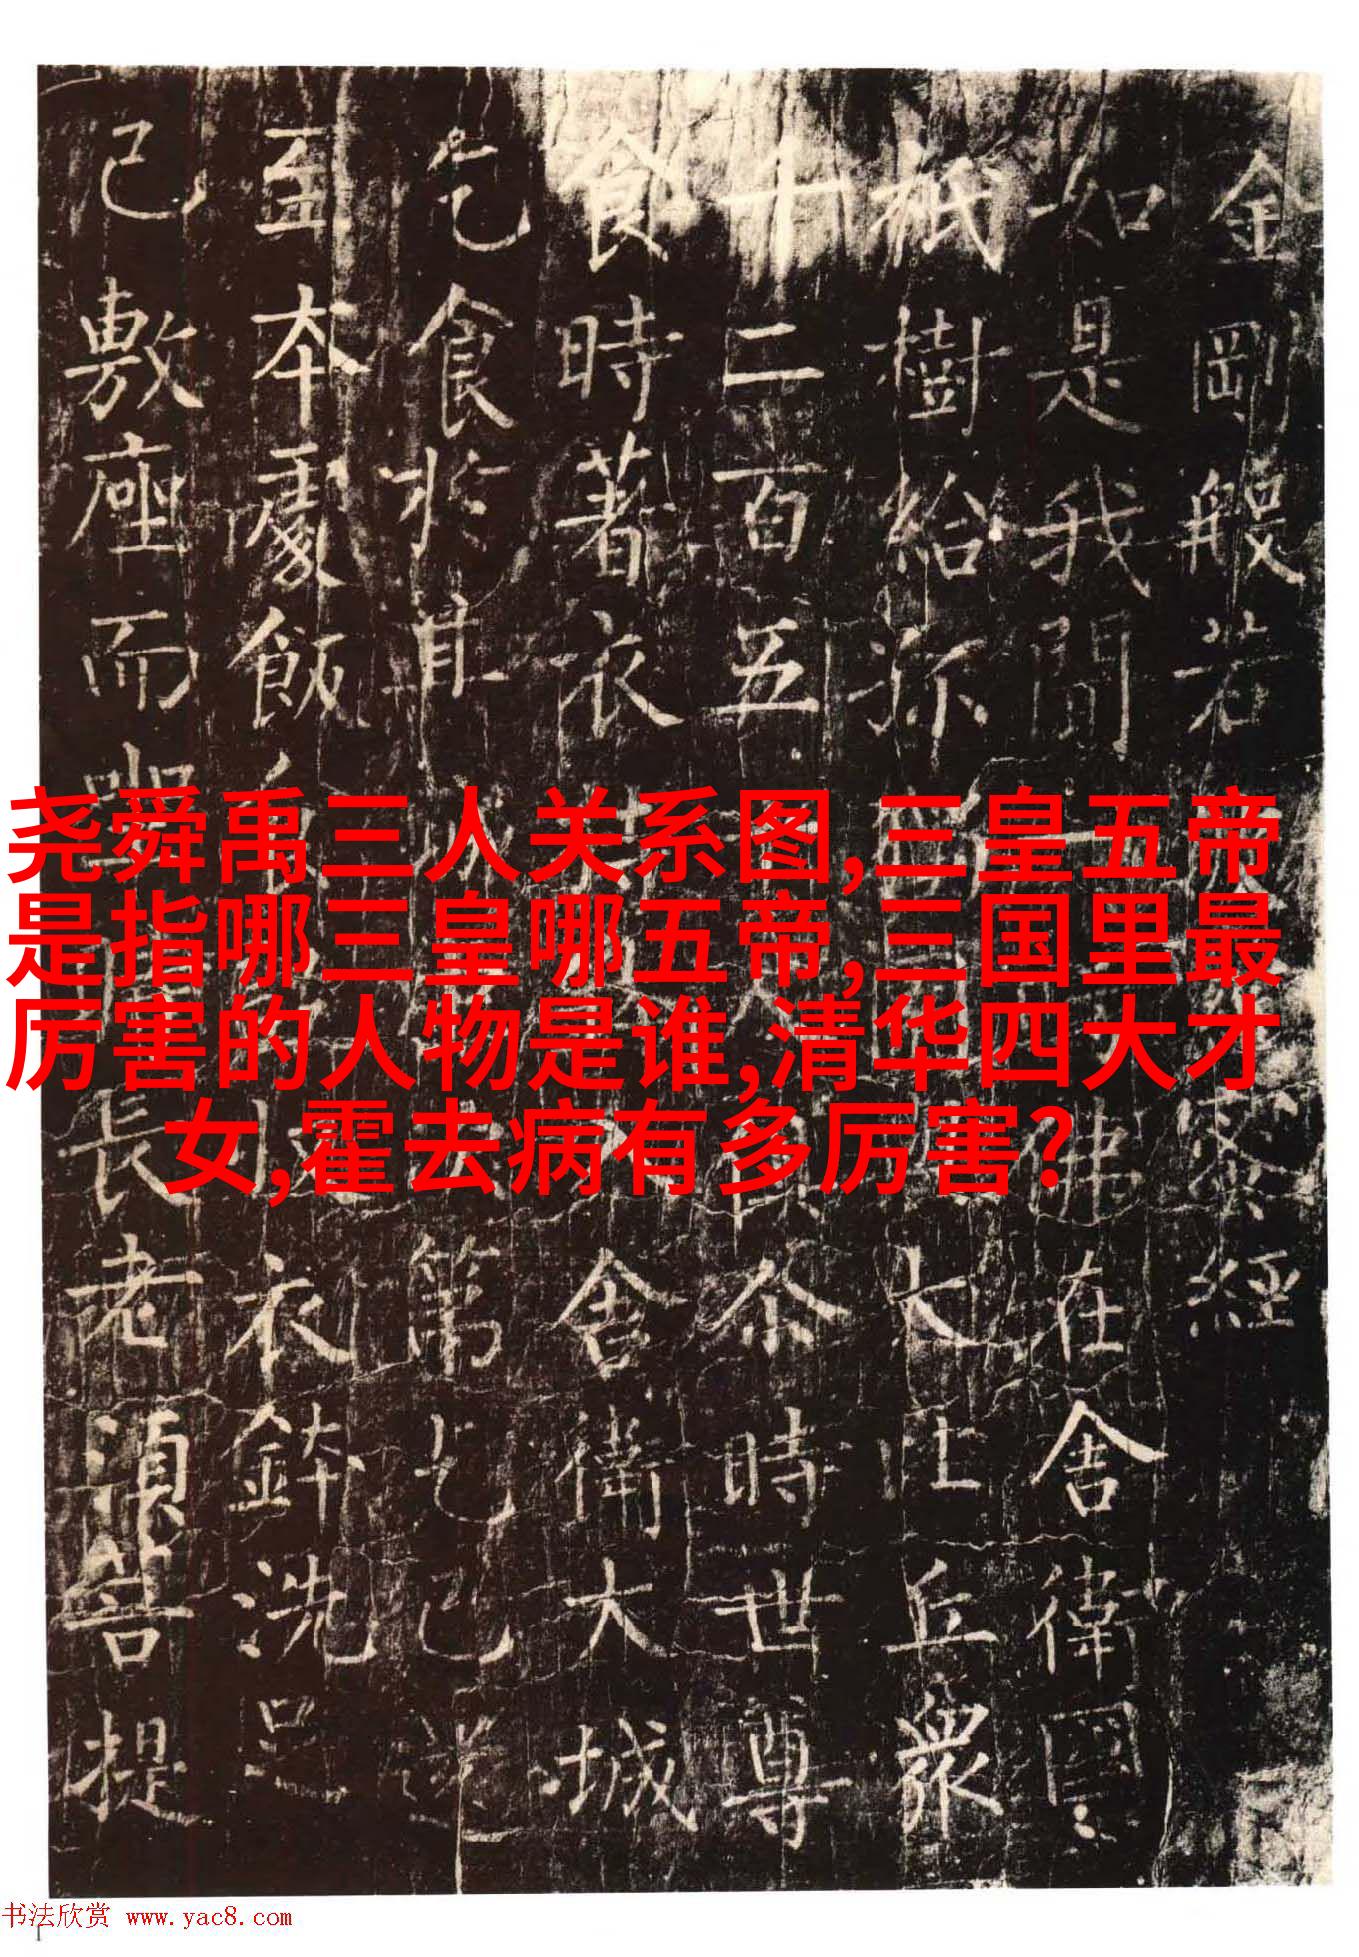 金剛般若蜜經
如是我聞佛在舍衛國
祇樹給孤大比丘衆
十二百五尒時世尊
食時著衣舍衛大城
乞食於其城第乞已還
至本處飯衣鉢洗足
已敷座而長老須菩提
尧舜禹三人关系图,三皇五帝
是指哪三皇哪五帝,三国里最
厉害的人物是谁,清华四大才
女,霍去病有多厉害?
书法欣赏 www.yac8.com